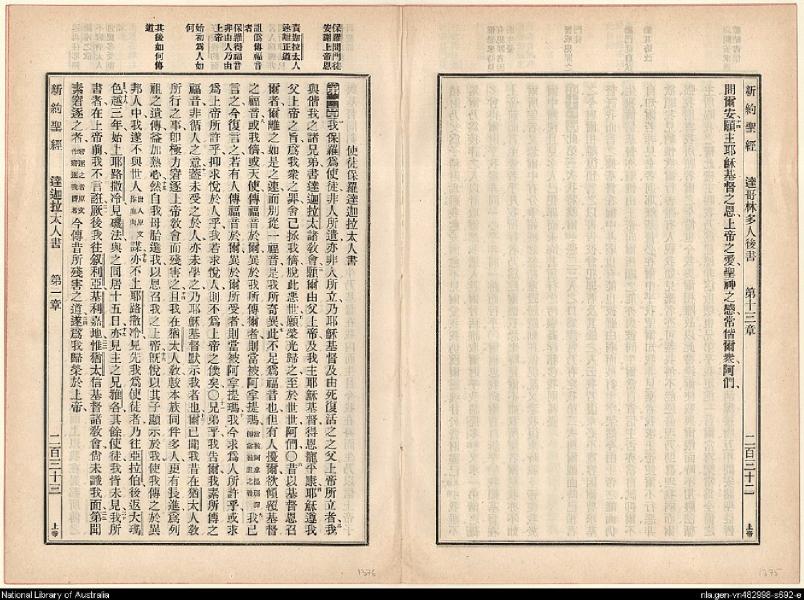 新約聖經 達哥林多人後書 第十三章 二百三十二 上帝
問爾安、願主耶穌基督之恩、上帝之愛、聖神之感、常偕爾衆、阿們、
1375
保羅問門徒安謝上帝恩
責迦拉太人速離正道
詛僞傳福音者
保羅得福音非由人乃由上帝
始初爲人如何
其後如何傳道
使徒保羅達迦拉太人書
我保羅爲使徒、非人所遣、亦非人所立、乃耶穌基督、及由死復活之之父上帝所立者、我
與偕我之諸兄弟、書達迦拉太諸教會、願爾由父上帝、及我主耶穌基督、得恩寵平康、耶穌遵我
父上帝之旨、爲我衆之罪舍己、拯我儕脫此惡世、願榮光歸之、至於世世、阿們、○昔以基督恩召
爾者、爾離之如是之速、而別從一福音、是我所奇異、此不足爲福音也、但有人擾爾、欲傾覆基督
之福音、或我儕、或天使、傳福音於爾、異於我所傳爾者、則當被阿拿提瑪、我已
言之、今復言之、若有人傳福音於爾、異於爾所受者、則當被阿拿提瑪、我今求爲人所許乎、或求
爲上帝所許乎、抑求悅於人乎、我若求悅人、則不爲上帝之僕矣、○兄弟乎、我告爾、我素所傳之
福音、非循人之意、蓋未受之於人、亦未學之、乃耶穌基督默示我者也、爾已聞我昔在猶太人教
所行之事、卽極力窘逐上帝教會而殘害之、且我在猶太人教、較本族同伴多人、更有長進、爲列
祖之遺傳、益加熱心、然自我母胎選我、以恩召我之上帝、旣悅以其子顯示於我、使我傳之於異
邦人中、我遂不與世人謀、亦不上耶路撒冷、見先我爲使徒者、乃往亞拉伯、後返大瑪
色、越三年、始上耶路撒冷見磯法、與之同居十五日、亦見主之兄雅各、其餘使徒、我皆未見、我所
書者、在上帝前我不言誑、厥後我往叙利亞基利嘉地、惟猶太信基督諸教會、尙未識我面、第聞
素窘逐之者、今傳昔所殘害之道、遂爲我歸榮於上帝、
新約聖經 達迦拉太人書 第一章 二百三十三 上帝
1376
National Library of Australia
nla.gen-vn482998-s692-e